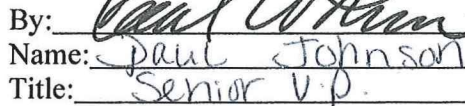 By:
Name: Paul Johnson
Title: Senior V.P.